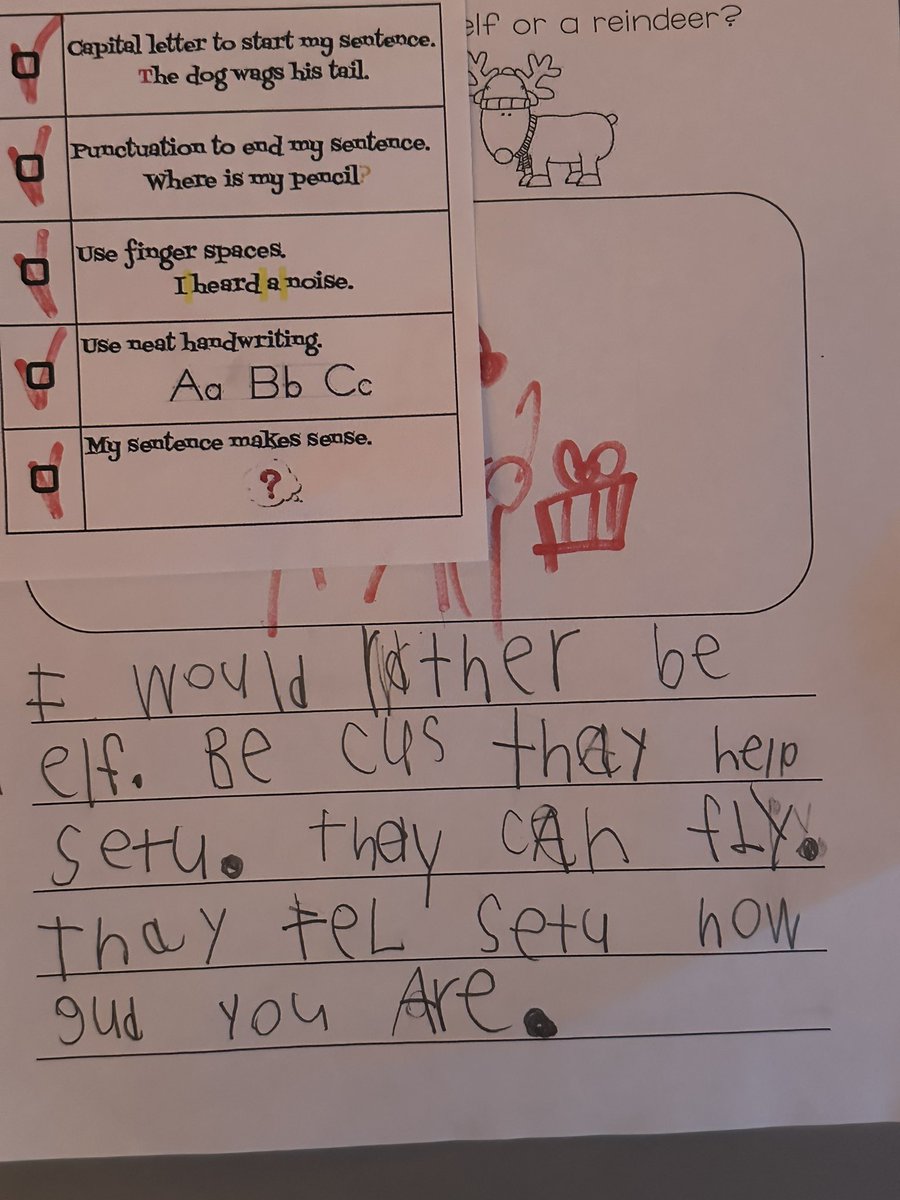 elf or a reindeer?
Capital letter to start my sentence.
The dog wags his tail.
Punctuation to end my sentence.
Where is my pencil?
Use finger spaces.
I heard a noise.
Use neat handwriting.
Aa Bb Cc
My sentence makes sense.
?
I would rather be
elf. Be cus thay help
setu. thay can fly.
thay tel setu how
gud you Are.